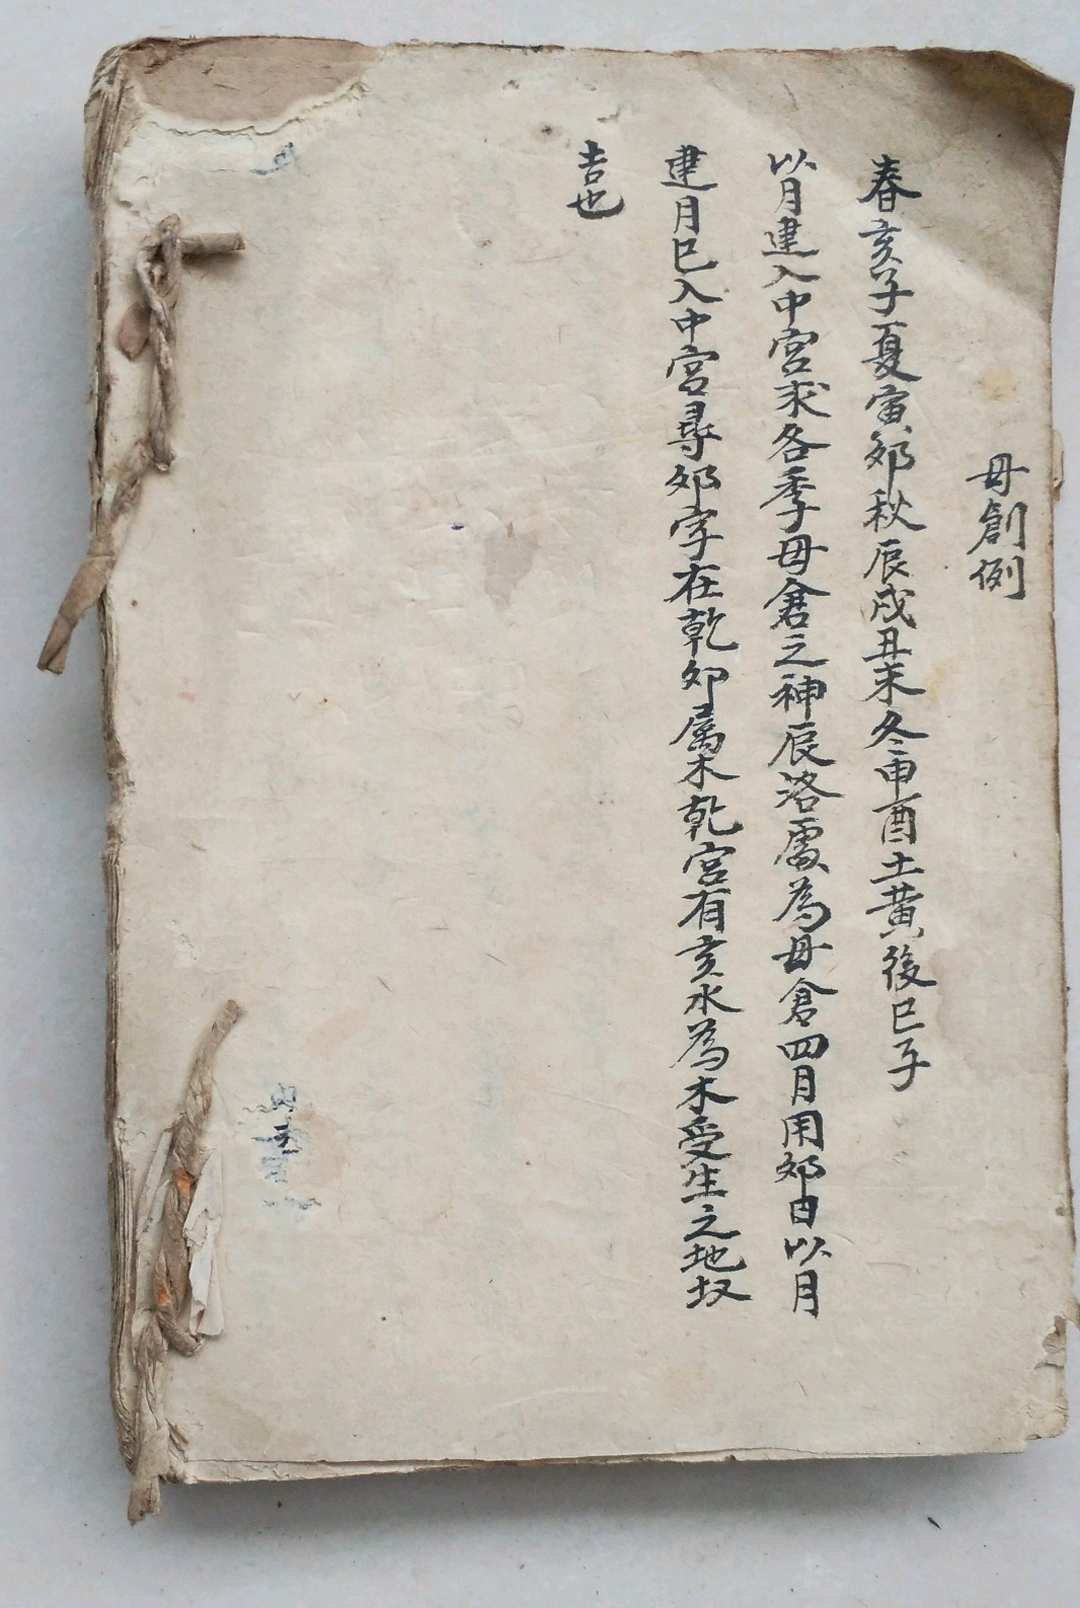 母創例
春亥子夏寅夘秋辰戌丑末冬申酉土黄後巳子
以月建入中宮求各季母倉之神辰洛處為母倉四月用夘日以月
建月巳入中宮尋夘字在乾夘属木乾宮有亥水為木受生之地故
吉也